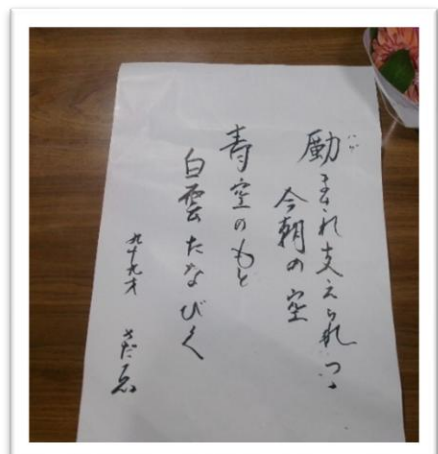 励まされ支えられつゝ
今朝の空
青空のもと
白雲たなびく
九十九才 さだゑ